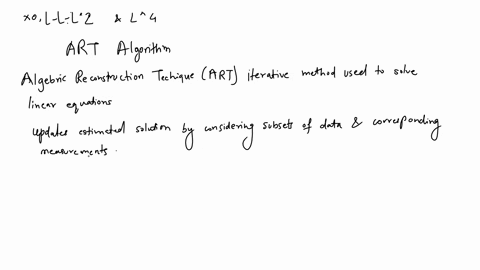 x0, L-L-L^2 & L^4
ART Algorithm
Algebric Reconstruction Techique (ART) iterative method used to solve
linear equations
updates estimated solution by considering subsets of data & corresponding
measurements.